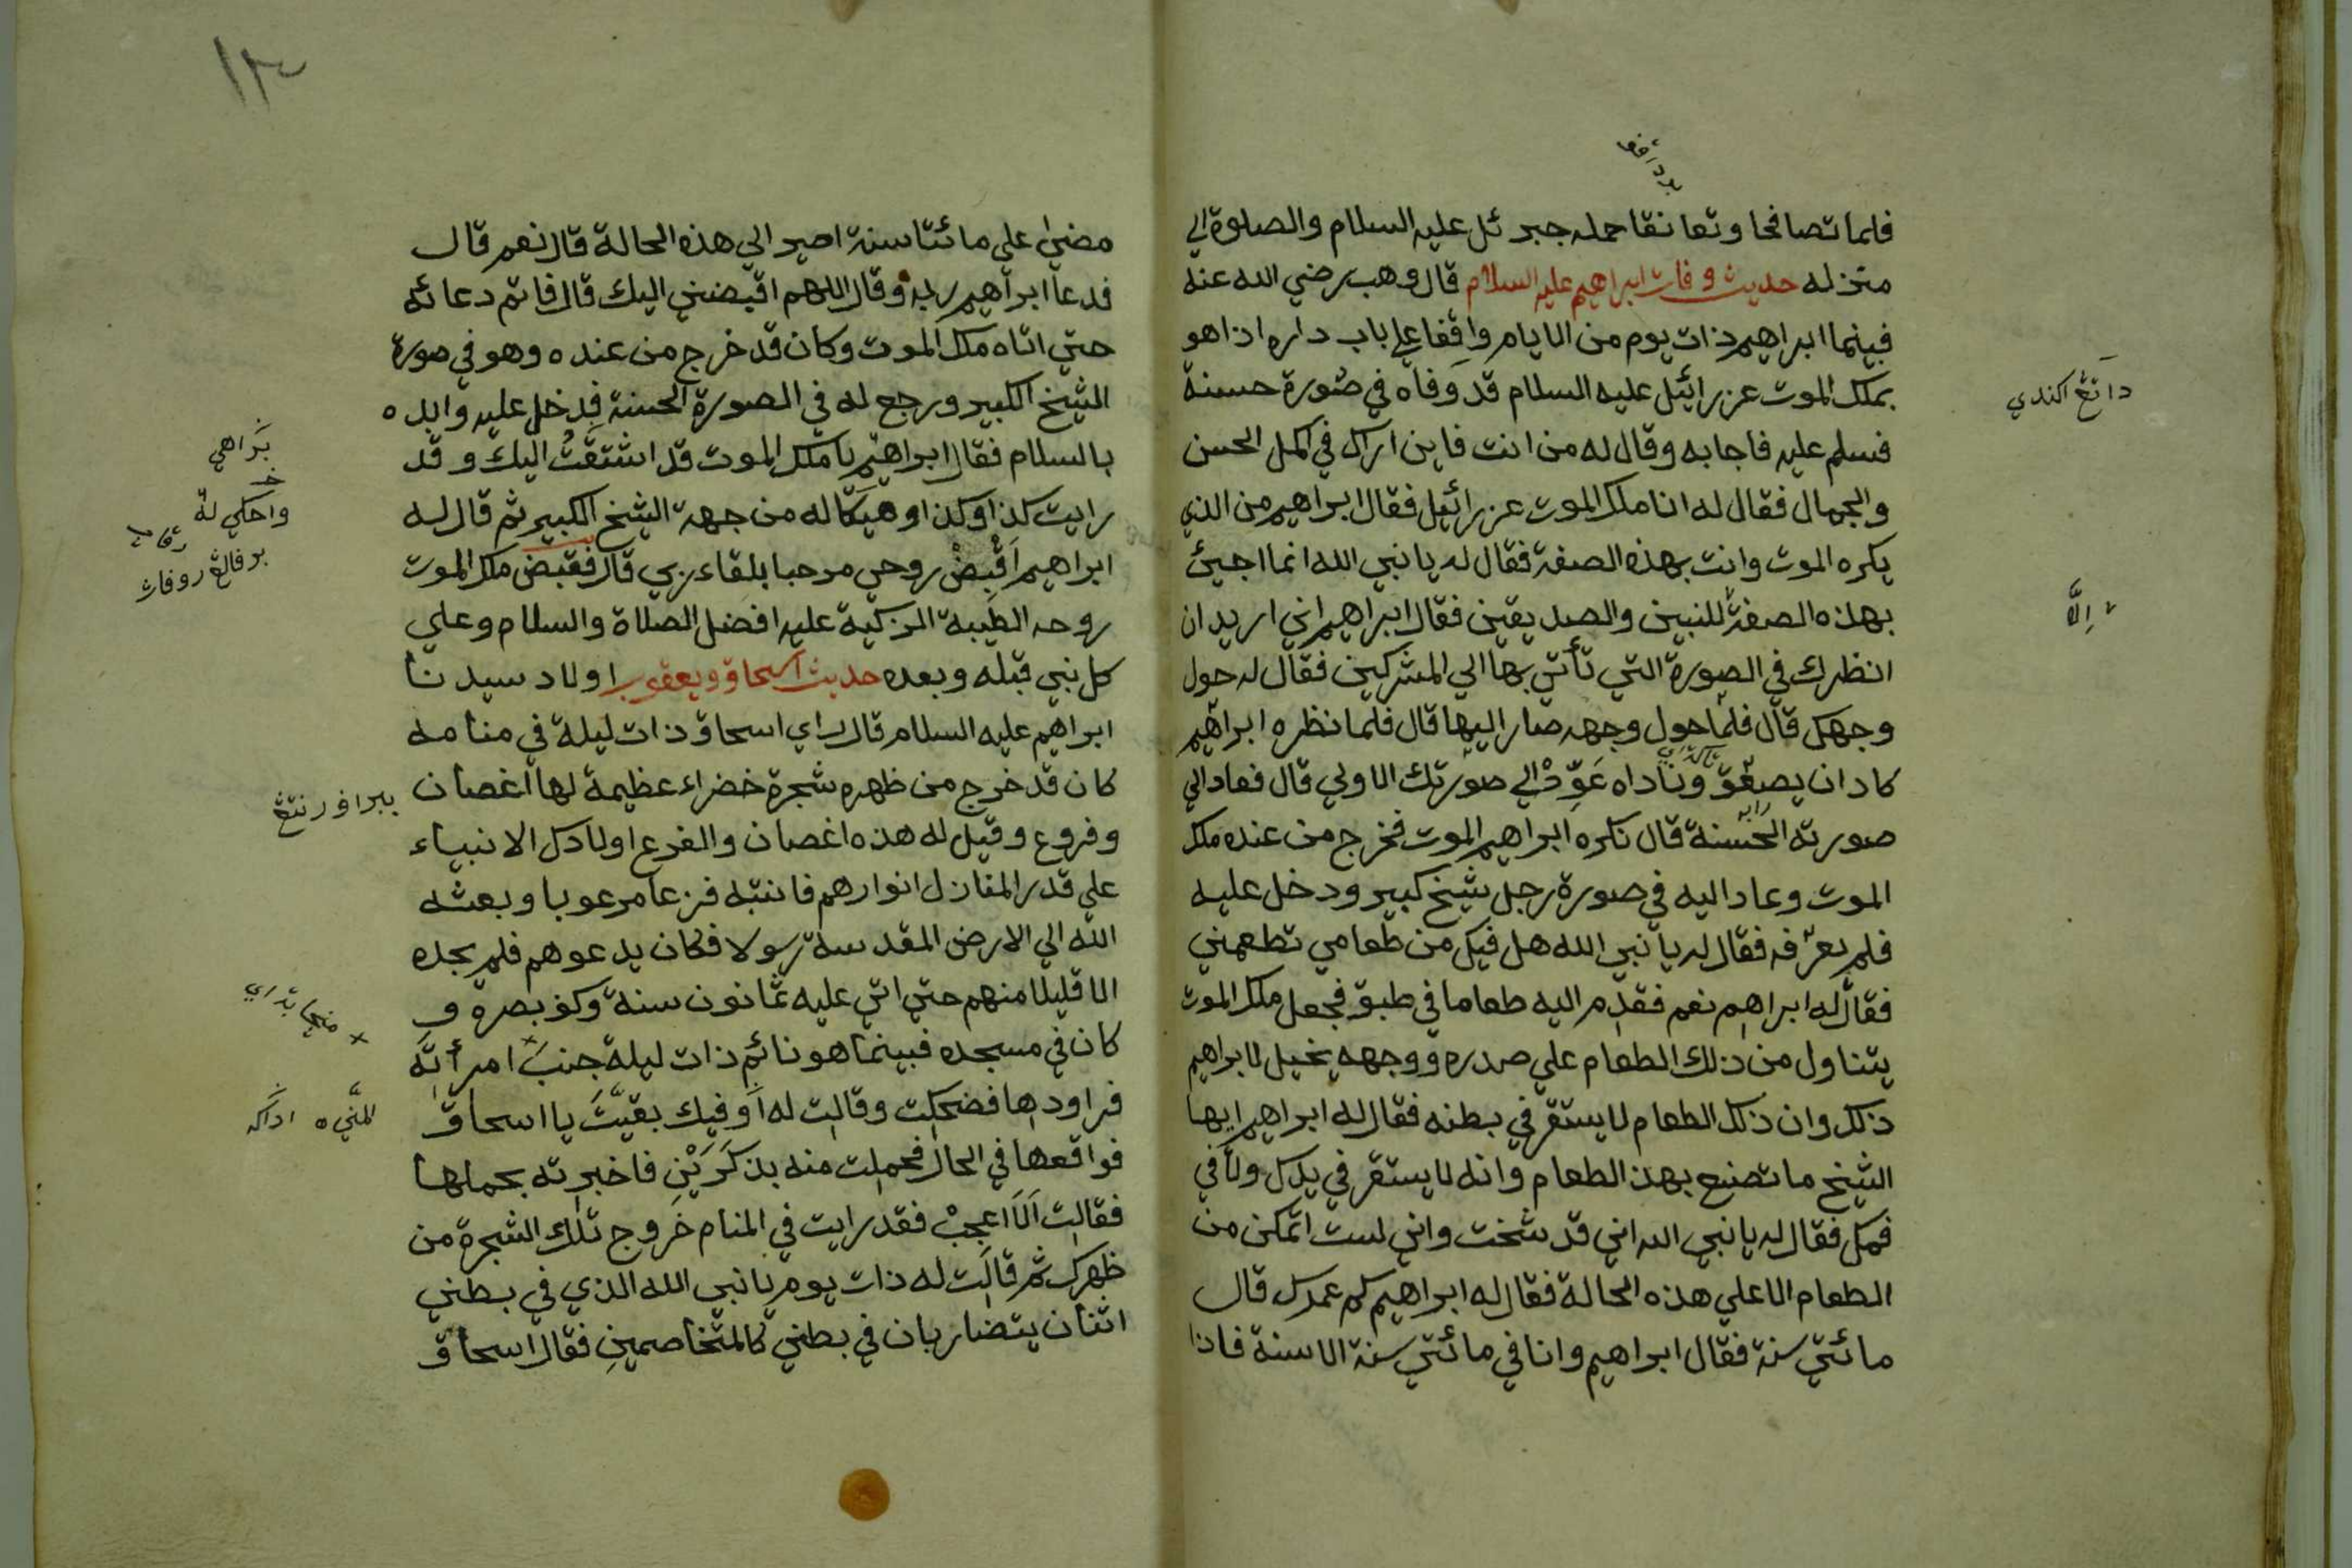 فلما تصافحا وتعانقا حمله جبرئل عليه السلام والصلوة الي
منزله حديث وفات ابراهيم عليه السلام قال وهب رضي الله عنه
فبينما ابراهيم ذات يوم من الايام واقفا علي باب داره اذا هو
بملك الموت عزرائيل عليه السلام قد وفاه في صورة حسنة
فسلم عليه فاجابه وقال له من انت فاين اراك في اكمل الحسن
والجمال فقال له انا ملك الموت عزرائيل فقال ابراهيم من الذي
يكره الموت وانت بهذه الصفة فقال له يا نبي الله انما اجيئ
بهذه الصفة للنبين والصديقين فقال ابراهيم اني اريد ان
الّا
انظرك في الصورة التي تأتي بها الي المشركين فقال له حول
وجهك قال فلما حول وجهه صار اليها قال فلما نظره ابراهيم
كاد ان يصعق وناداه عَوِّدْ الي صورتك الاولي قال فعاد الي
صورته الحسنة قال نكره ابراهيم الموت فخرج من عنده ملك
الموت وعاد اليه في صورة رجل شيخ كبير ودخل عليه
فلم يعرفه فقال له يا نبي الله هل فيك من طعامي تطعمني
فقال له ابراهيم نعم فقدم اليه طعاما في طبق فجعل ملك الموت
يتناول من ذلك الطعام علي صدره ووجهه يخيل لابراهيم
ذلك وان ذلك الطعام لا يستقر في بطنه فقال له ابراهيم ايها
الشيخ ما تصنع بهذ الطعام وانه لا يستقر في يدك ولا في
فمك فقال له يا نبي الله اني قد شخت واني لست اتمكن من
الطعام الا علي هذه الحالة فقال له ابراهيم كم عمرك قال
مائتي سنة فقال ابراهيم وانا في مائتي سنة الا سنة فاذا
١٣٠
مضيٰ علي مائتا سنة اصير الي هذه الحالة قال نعم قال
فدعا ابراهيم ربه وقال اللهم اقبضني اليك قال فاتم دعائه
حتي اتاه ملك الموت وكان قد خرج من عنده وهو في صورة
الشيخ الكبير ورجع له في الصورة الحسنة فدخل عليه وابده
بالسلام فقال ابراهيم يا ملك الموت قد اشتقتُ اليك وقد
رايت كذا وكذا وهيكا له من جهة الشيخ الكبير ثم قال له
واحكي له
ابراهيم اَقْبِضْ روحي مرحبا بلقاء ربي قال فقبض ملك الموت
روحه الطيبة الزكية عليه افضل الصلاة والسلام وعلي
كل نبي قبله وبعده حديث اسحاق ويعقوب اولاد سيدنا
ابراهيم عليه السلام قال راي اسحاق ذات ليلة في منامه
كان قد خرج من ظهره شجرة خضراء عظيمة لها اغصان
وفروع وقيل له هذه اغصان والفرع اولادك الانبياء
علي قدر المنازل انوارهم فانتبه فزعا مرعوبا وبعثه
الله الي الارض المقدسة رسولا فكان يدعوهم فلم يجده
الا قليلا منهم حتي اتي عليه ثمانون سنة وكف بصره و
كان في مسجده فبينما هو نائم ذات ليلة جنب امرأته
فراودها فضحكت وقالت له اَوَفيك بقيَّتَ يا اسحاق
فواقعها في الحال فحملت منه بذكَرَيْنِ فاخبرته بحملها
فقالت اَلَا اعجبْ فقد رايت في المنام خروج تلك الشجرة من
ظهرك ثم قالت له ذات يوم يا نبي الله الذي في بطني
اثنان يتضاربان في بطني كالمتخاصمين فقال اسحاق